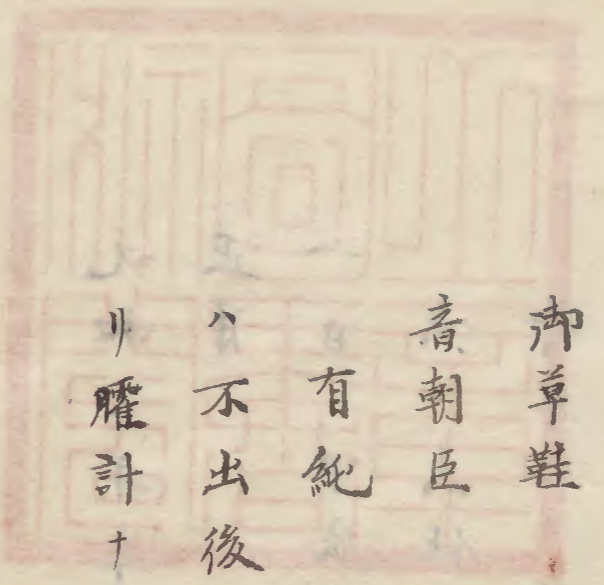 御草鞋
音朝臣
有純
ハ不出後
リ臛計十